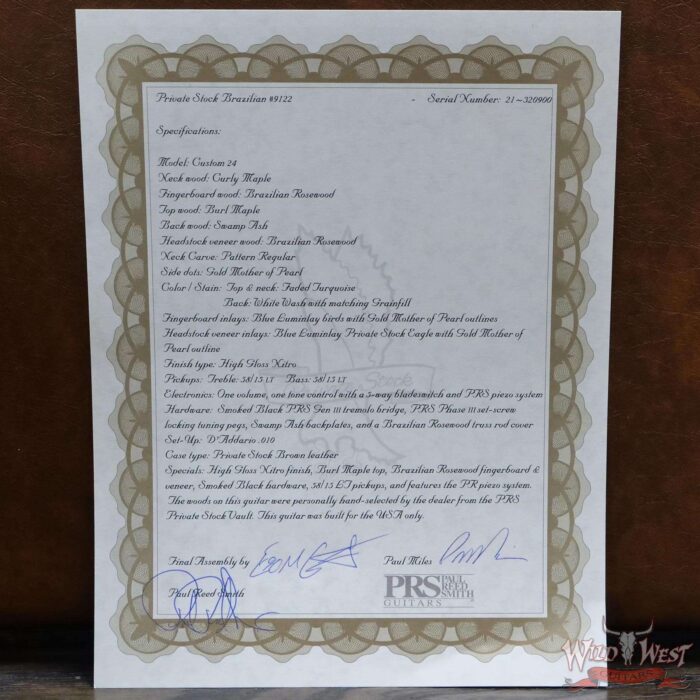 Private Stock Brazilian #9122 - Serial Number: 21~320900
Specifications:
Model: Custom 24
Neck wood: Curly Maple
Fingerboard wood: Brazilian Rosewood
Top wood: Burl Maple
Back wood: Swamp Ash
Headstock veneer wood: Brazilian Rosewood
Neck Carve: Pattern Regular
Side dots: Gold Mother of Pearl
Color / Stain: Top & neck: Faded Turquoise
Back: White Wash with matching Grainfill
Fingerboard inlays: Blue Luminlay birds with Gold Mother of Pearl outlines
Headstock veneer inlays: Blue Luminlay Private Stock Eagle with Gold Mother of
Pearl outline
Finish type: High Gloss Nitro
Pickups: Treble: 58/15 LT Bass: 58/15 LT
Electronics: One volume, one tone control with a 5-way bladeswitch and PRS piezo system
Hardware: Smoked Black PRS Gen III tremolo bridge, PRS Phase III set-screw
locking tuning pegs, Swamp Ash backplates, and a Brazilian Rosewood truss rod cover
Set-Up: D'Addario .010
Case type: Private Stock Brown leather
Specials: High Gloss Nitro finish, Burl Maple top, Brazilian Rosewood fingerboard &
veneer, Smoked Black hardware, 58/15 LT pickups, and features the PR piezo system.
The woods on this guitar were personally hand-selected by the dealer from the PRS
Private Stock Vault. This guitar was built for the USA only.
Final Assembly by
Paul Miles
Paul Reed Smith
PRS PAUL
REED
SMITH
GUITARS
WILD WEST
GUITARS